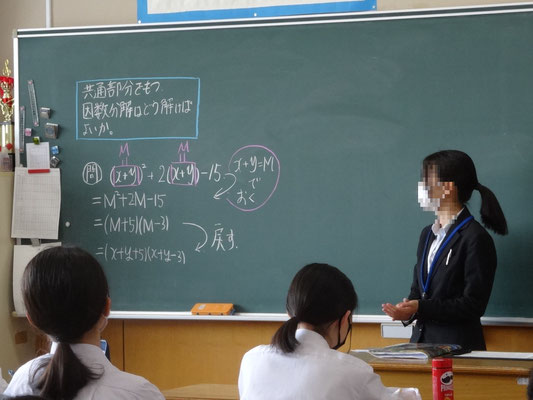 共通部分をもつ
因数分解はどう解けば
よいか。
M M
問 (x+y)²+2(x+y)-15
x+y=M
で
おく
=M²+2M-15
=(M+5)(M-3)
戻す。
=(x+y+5)(x+y-3)